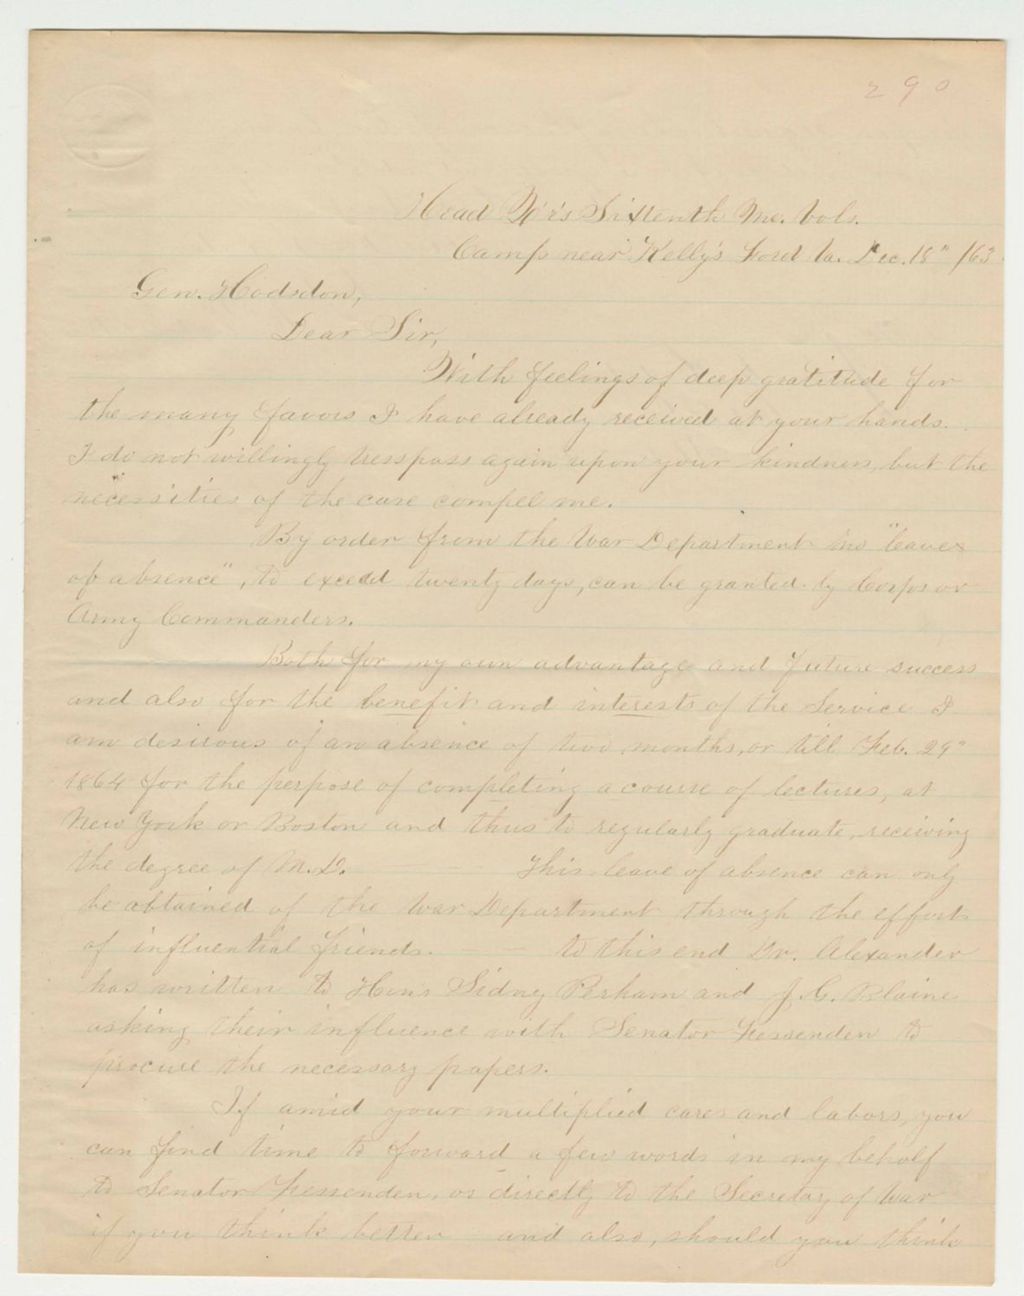 290
Head Qr's Sixteenth Me. Vols.
Camp near Kelly's Ford Va. Dec. 18" /63
Gen. Hodsdon,
Dear Sir,
With feelings of deep gratitude for
the many favors I have already received at your hands.
I do not willingly tresspass again upon your kindness, but the
necessities of the case compel me.
By order from the War Department no "leaves
of absence", to exceed twenty days, can be granted by Corps or
Army Commanders.
Both for my own advantage and future success
and also for the benefit and interests of the Service I
am desirous of an absence of two months, or till Feb. 29"
1864 for the perpose of completing a course of lectures, at
New York or Boston and thus to regularly graduate, receiving
the degree of M.D. — This leave of absence can only
be obtained of the War Department through the effort
of influential friends. — to this end Dr. Alexander
has written to Hon's Sidney Perham and J. G. Blaine
asking their influence with Senator Fessenden to
procure the necessary papers.
If amid your multiplied cares and labors, you
can find time to forward a few words in my behalf
to Senator Fessenden, or directly to the Secretary of War
if you think better and also, should you think